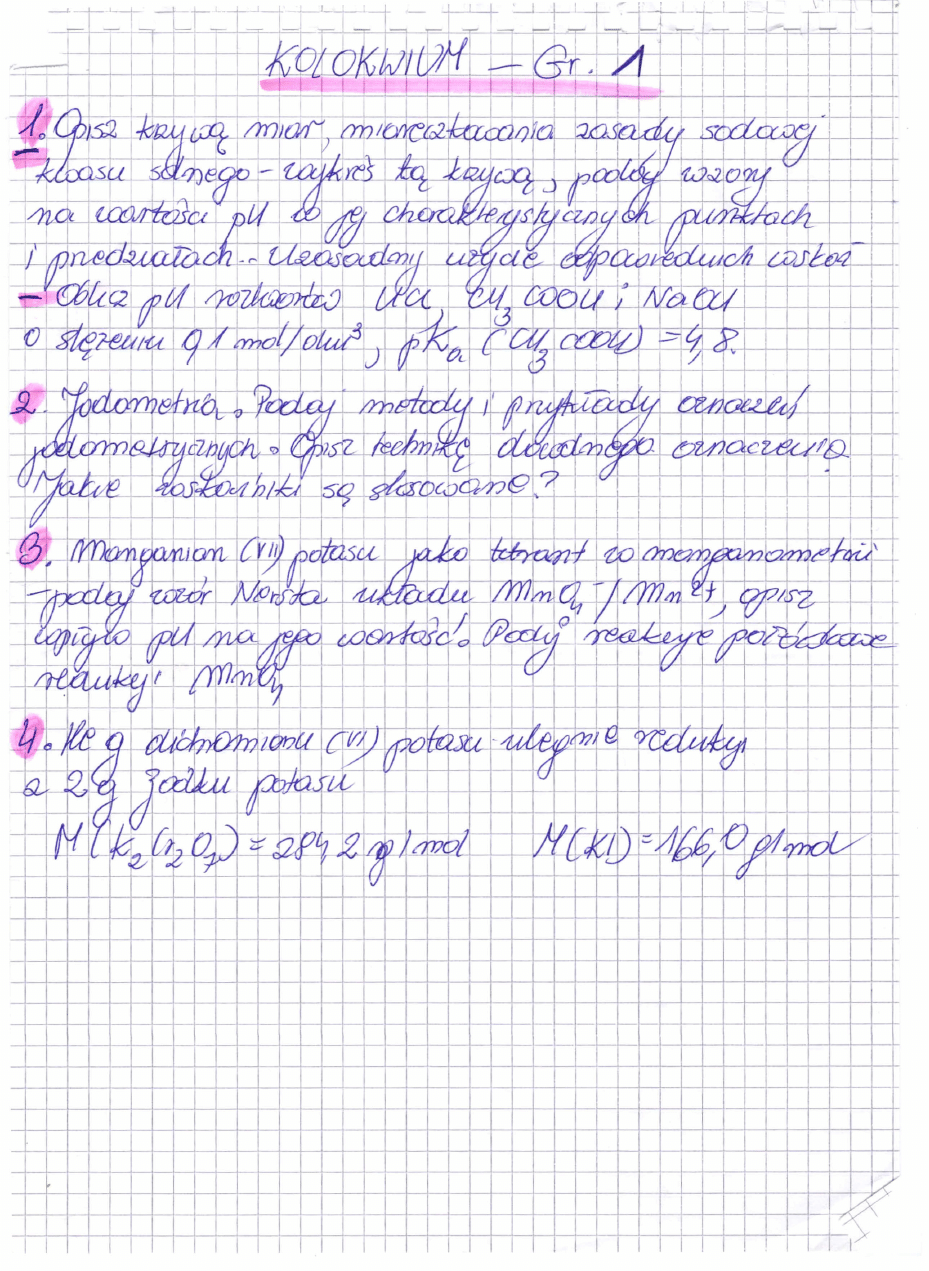 KOLOKWIUM – Gr. 1
1. Opisz krzywą miar, miareczkowania zasady sodowej
kwasu solnego – wykreś tą krzywą, podaj wzory
na wartości pH w jej charakterystycznych punktach
i przedziałach.. Uzasadnij użycie odpowiednich wskaź
– Oblicz pH roztworów HCl, CH3COOH i NaOH
o stężeniu 0,1 mol/dm³, pKa (CH3COOH) = 4,8.
2. Jodometria. Podaj metody i przykłady oznaczeń
jodometrycznych. Opisz technikę dowolnego oznaczenia.
Jakie wskaźniki są stosowane?
3. Manganian (VII) potasu jako titrant w manganometrii
– podaj wzór Nernsta układu MnO4⁻/Mn²⁺, opisz
wpływ pH na jego wartość. Podaj reakcje połówkowe
redukcji MnO4
4. Ile g dichromianu (VI) potasu ulegnie redukcji
z 2 g jodku potasu
M(K2Cr2O7) = 294,2 g/mol M(KI) = 166,0 g/mol